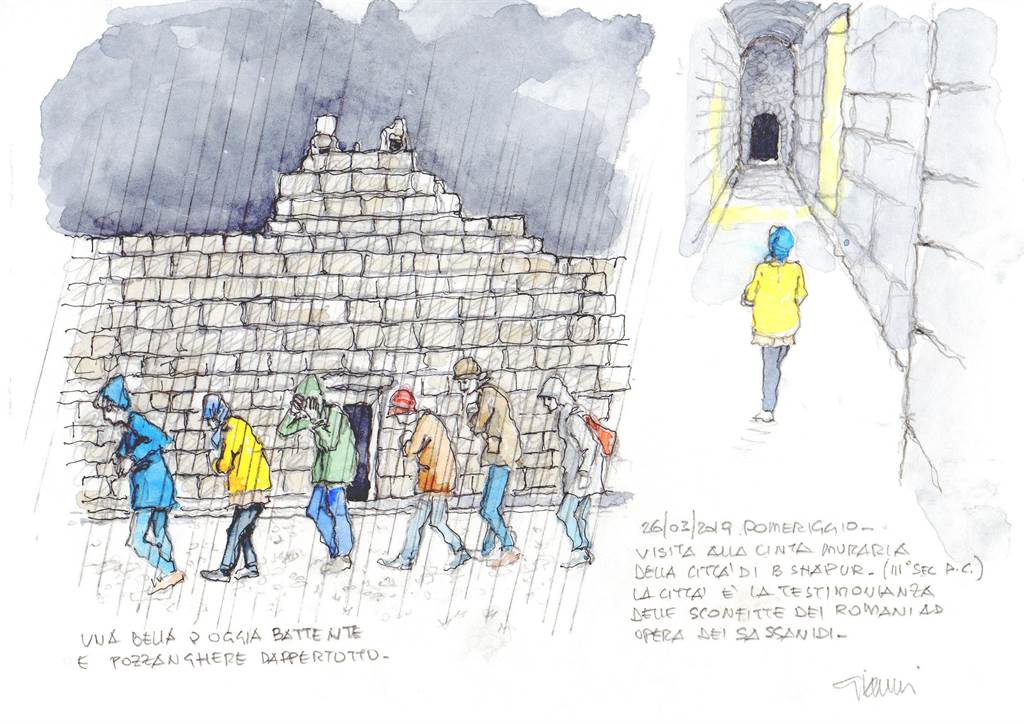 UNA BELLA PIOGGIA BATTENTE
E POZZANGHERE DAPPERTUTTO-
26/03/2019 POMERIGGIO-
VISITA ALLA CINTA MURARIA
DELLA CITTA' DI BISHAPUR- (III° SEC A.C.)
LA CITTA' È LA TESTIMONIANZA
DELLE SCONFITTE DEI ROMANI AD
OPERA DEI SASSANIDI-
Gianni